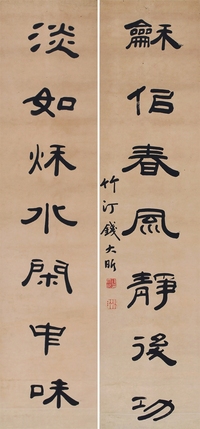 龢佀春風靜後功
淡如秋水閑中味
竹汀錢大昕